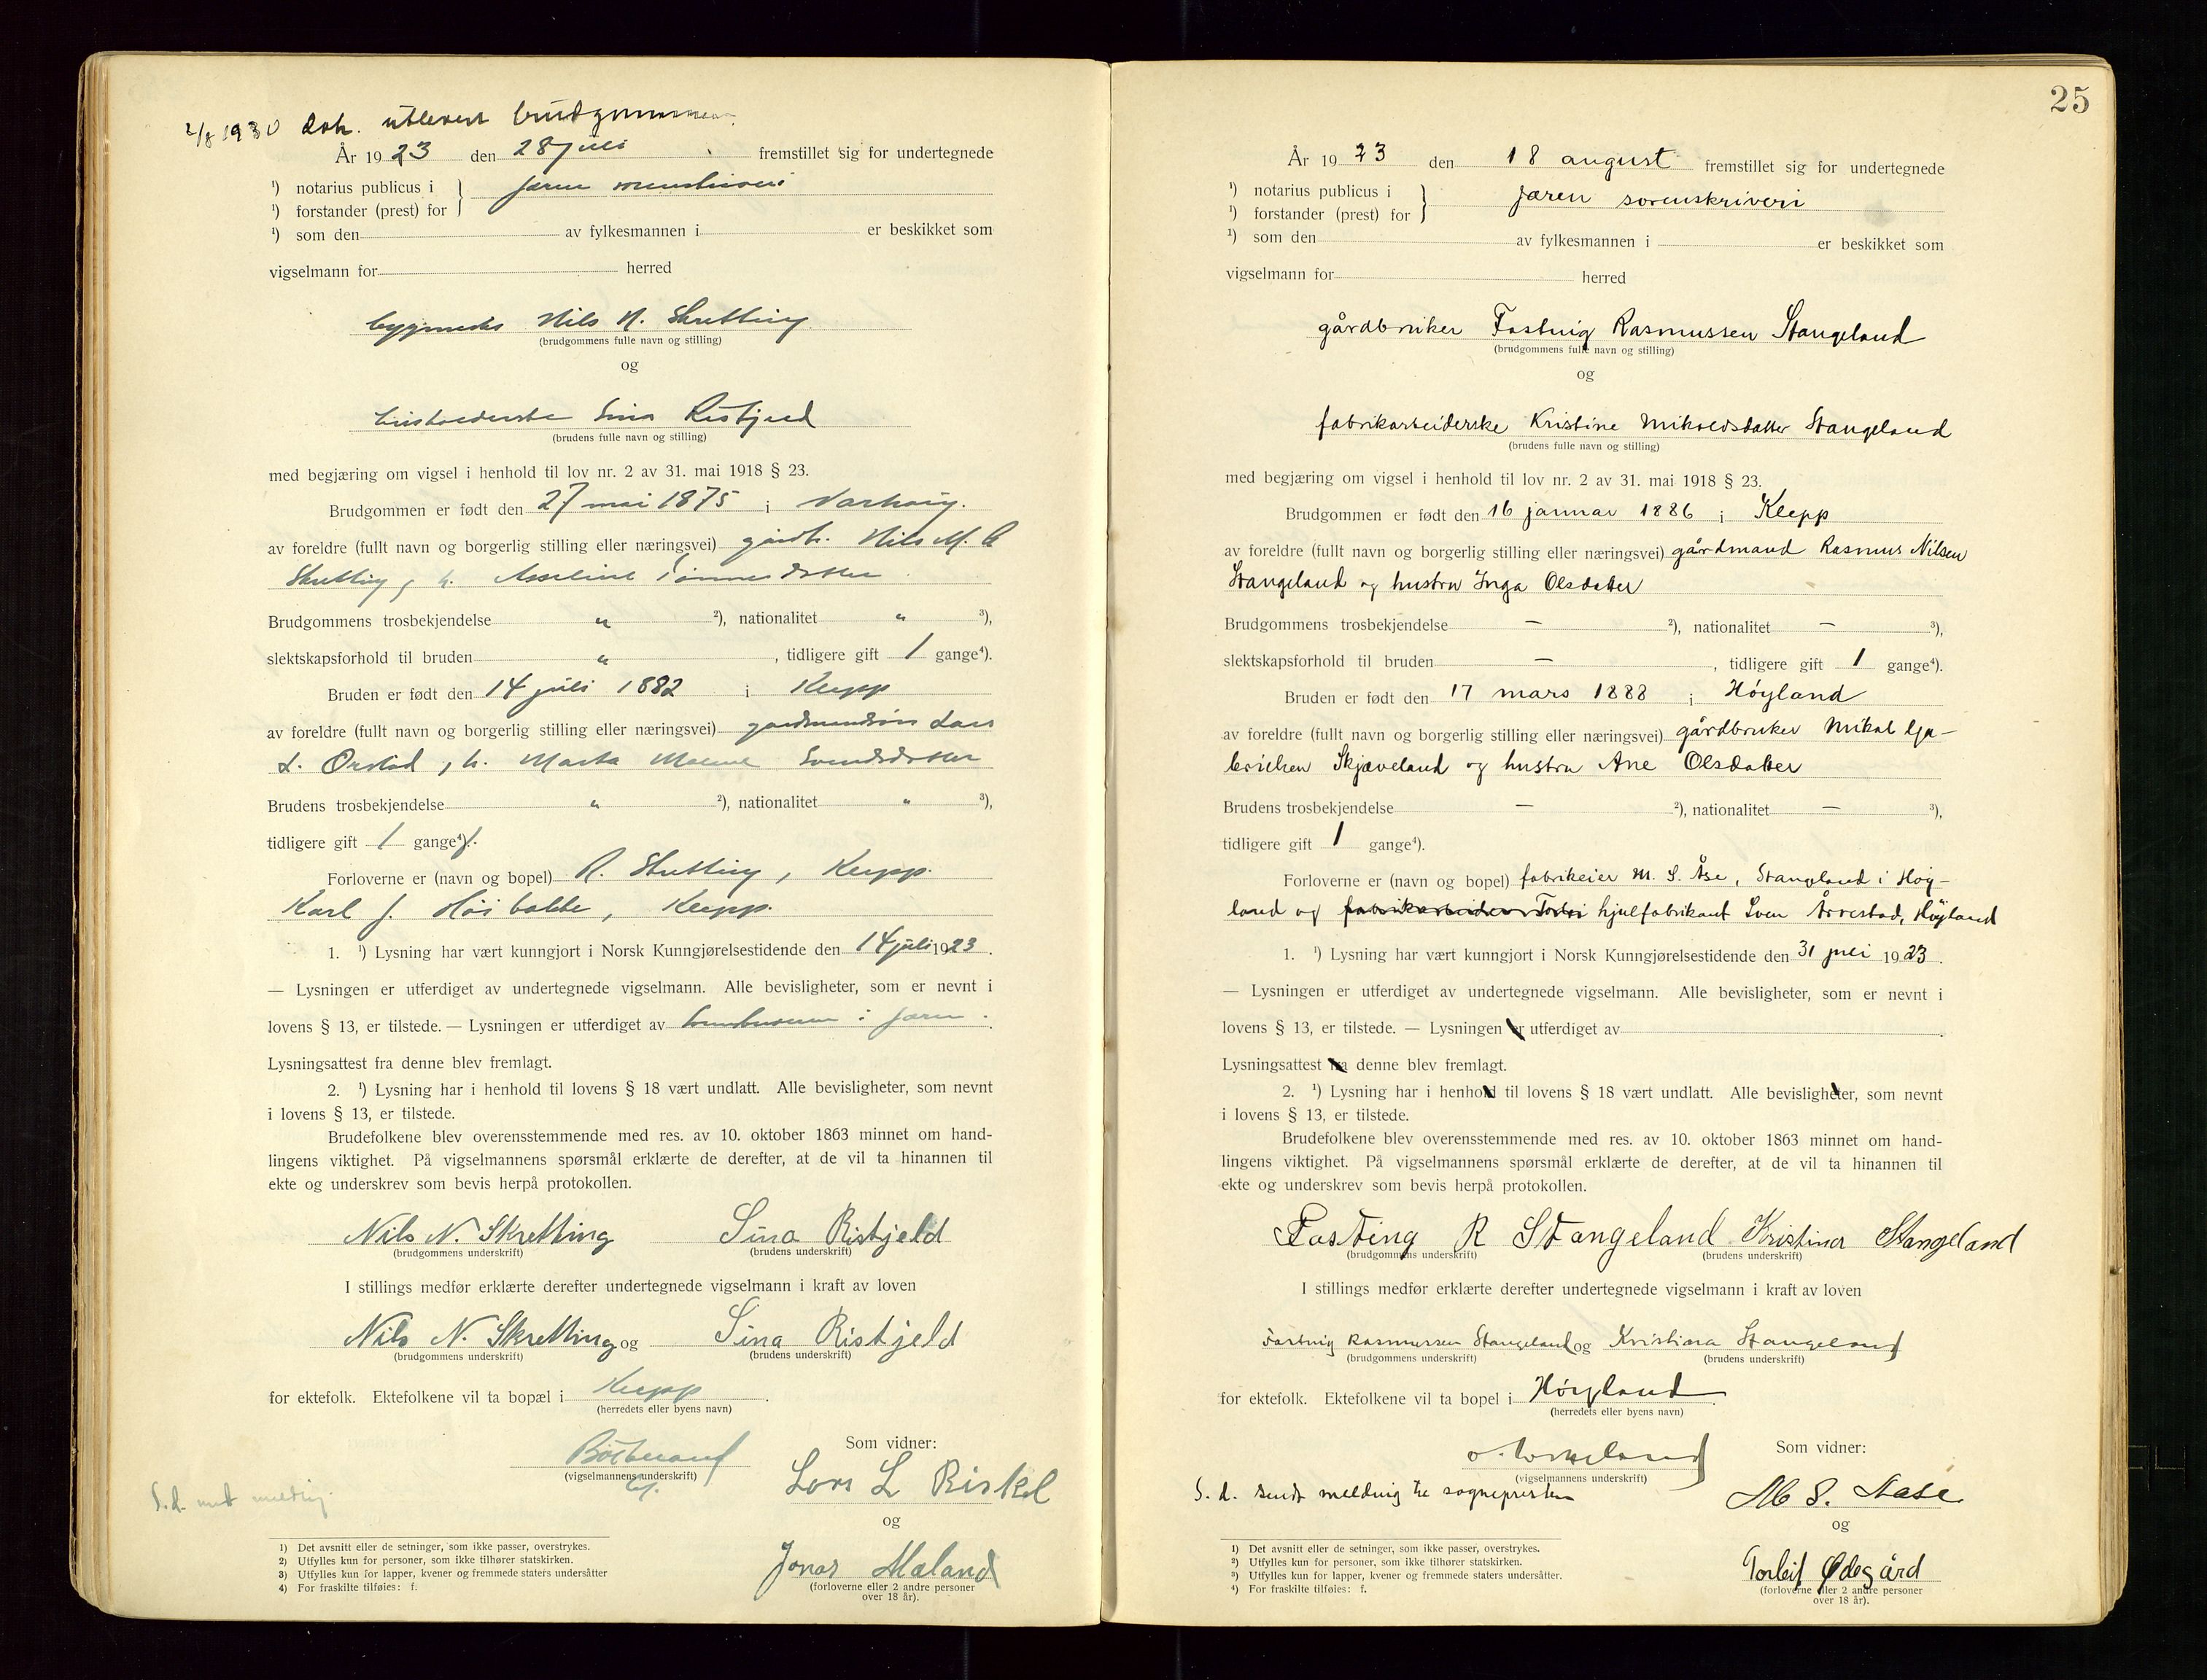 2/8 1930 dok. utlevert brudgommen.
År 1923 den 28 juli fremstillet sig for undertegnede
¹) notarius publicus i } Jæren sorenskriveri
¹) forstander (prest) for
¹) som den av fylkesmannen i er beskikket som
vigselmann for herred
Nils N. Skretting
(brudgommens fulle navn og stilling)
og
Sina Ristjeld
(brudens fulle navn og stilling)
med begjæring om vigsel i henhold til lov nr. 2 av 31. mai 1918 § 23.
Brudgommen er født den 27 mai 1875 i Varhaug.
av foreldre (fullt navn og borgerlig stilling eller næringsvei) gårdbr. Nils M. A
Skretting, h. Asseline Tønnesdatter
Brudgommens trosbekjendelse " ²), nationalitet " ³),
slektskapsforhold til bruden " , tidligere gift 1 gange⁴).
Bruden er født den 14 juli 1882 i Klepp
av foreldre (fullt navn og borgerlig stilling eller næringsvei) Lars
L. Orstad, h. Marta Malene Svendsdatter
Brudens trosbekjendelse " ²), nationalitet " ³),
tidligere gift 1 gange⁴).
Forloverne er (navn og bopel) R. Skretting, Klepp.
Karl J. Høibakke, Klepp.
1. ¹) Lysning har vært kunngjort i Norsk Kunngjørelsestidende den 14 juli 1923.
— Lysningen er utferdiget av undertegnede vigselmann. Alle bevisligheter, som er nevnt i
lovens § 13, er tilstede. — Lysningen er utferdiget av sorenskriveren i Jæren.
Lysningsattest fra denne blev fremlagt.
2. ¹) Lysning har i henhold til lovens § 18 vært undlatt. Alle bevisligheter, som nevnt
i lovens § 13, er tilstede.
Brudefolkene blev overensstemmende med res. av 10. oktober 1863 minnet om hand-
lingens viktighet. På vigselmannens spørsmål erklærte de derefter, at de vil ta hinannen til
ekte og underskrev som bevis herpå protokollen.
Nils N. Skretting Sina Ristjeld
(brudgommens underskrift) (brudens underskrift)
I stillings medfør erklærte derefter undertegnede vigselmann i kraft av loven
Nils N. Skretting og Sina Ristjeld
(brudgommens underskrift) (brudens underskrift)
for ektefolk. Ektefolkene vil ta bopæl i Klepp.
(herredets eller byens navn)
Som vidner:
(vigselmannens underskrift)
Lars L Riskel
S. d. melding
og
Jonas Mæland
(forloverne eller 2 andre personer
over 18 år).
1) Det avsnitt eller de setninger, som ikke passer, overstrykes.
2) Utfylles kun for personer, som ikke tilhører statskirken.
3) Utfylles kun for lapper, kvener og fremmede staters undersåtter
4) For fraskilte tilføies: f.
25
År 1923 den 18 august fremstillet sig for undertegnede
¹) notarius publicus i } Jæren sorenskriveri
¹) forstander (prest) for
¹) som den av fylkesmannen i er beskikket som
vigselmann for herred
gårdbruker Fasting Rasmussen Stangeland
(brudgommens fulle navn og stilling)
og
fabrikarbeiderske Kristine Mikalsdatter Stangeland
(brudens fulle navn og stilling)
med begjæring om vigsel i henhold til lov nr. 2 av 31. mai 1918 § 23.
Brudgommen er født den 16 januar 1886 i Klepp
av foreldre (fullt navn og borgerlig stilling eller næringsvei) gårdmand Rasmus Nilsen
Stangeland og hustru Inga Olsdatter
Brudgommens trosbekjendelse — ²), nationalitet — ³),
slektskapsforhold til bruden — , tidligere gift 1 gange⁴).
Bruden er født den 17 mars 1888 i Høyland
av foreldre (fullt navn og borgerlig stilling eller næringsvei) gårdbruker Mikal Ga-
brielsen Skjæveland og hustru Ane Olsdatter
Brudens trosbekjendelse — ²), nationalitet — ³),
tidligere gift 1 gange⁴).
Forloverne er (navn og bopel) fabrikeier M. S. Åse, Stangeland i Høy-
land og fabrikarbeider Torlei hjulfabrikant Sven Årrestad, Høyland
1. ¹) Lysning har vært kunngjort i Norsk Kunngjørelsestidende den 31 juli 1923.
— Lysningen er utferdiget av undertegnede vigselmann. Alle bevisligheter, som er nevnt i
lovens § 13, er tilstede. — Lysningen er utferdiget av
Lysningsattest fra denne blev fremlagt.
2. ¹) Lysning har i henhold til lovens § 18 vært undlatt. Alle bevisligheter, som nevnt
i lovens § 13, er tilstede.
Brudefolkene blev overensstemmende med res. av 10. oktober 1863 minnet om hand-
lingens viktighet. På vigselmannens spørsmål erklærte de derefter, at de vil ta hinannen til
ekte og underskrev som bevis herpå protokollen.
Fasting R Stangeland Kristina Stangeland
(brudgommens underskrift) (brudens underskrift)
I stillings medfør erklærte derefter undertegnede vigselmann i kraft av loven
Fasting Rasmussen Stangeland og Kristina Stangeland
(brudgommens underskrift) (brudens underskrift)
for ektefolk. Ektefolkene vil ta bopel i Høyland.
(herredets eller byens navn)
Som vidner:
(vigselmannens underskrift)
S. d. sendt melding til sognepresten
M. S. Aase
og
Torleif Ødegård
(forloverne eller 2 andre personer
over 18 år).
1) Det avsnitt eller de setninger, som ikke passer, overstrykes.
²) Utfylles kun for personer, som ikke tilhører statskirken.
³) Utfylles kun for lapper, kvener og fremmede staters undersåtter.
⁴) For fraskilte tilføies: f.